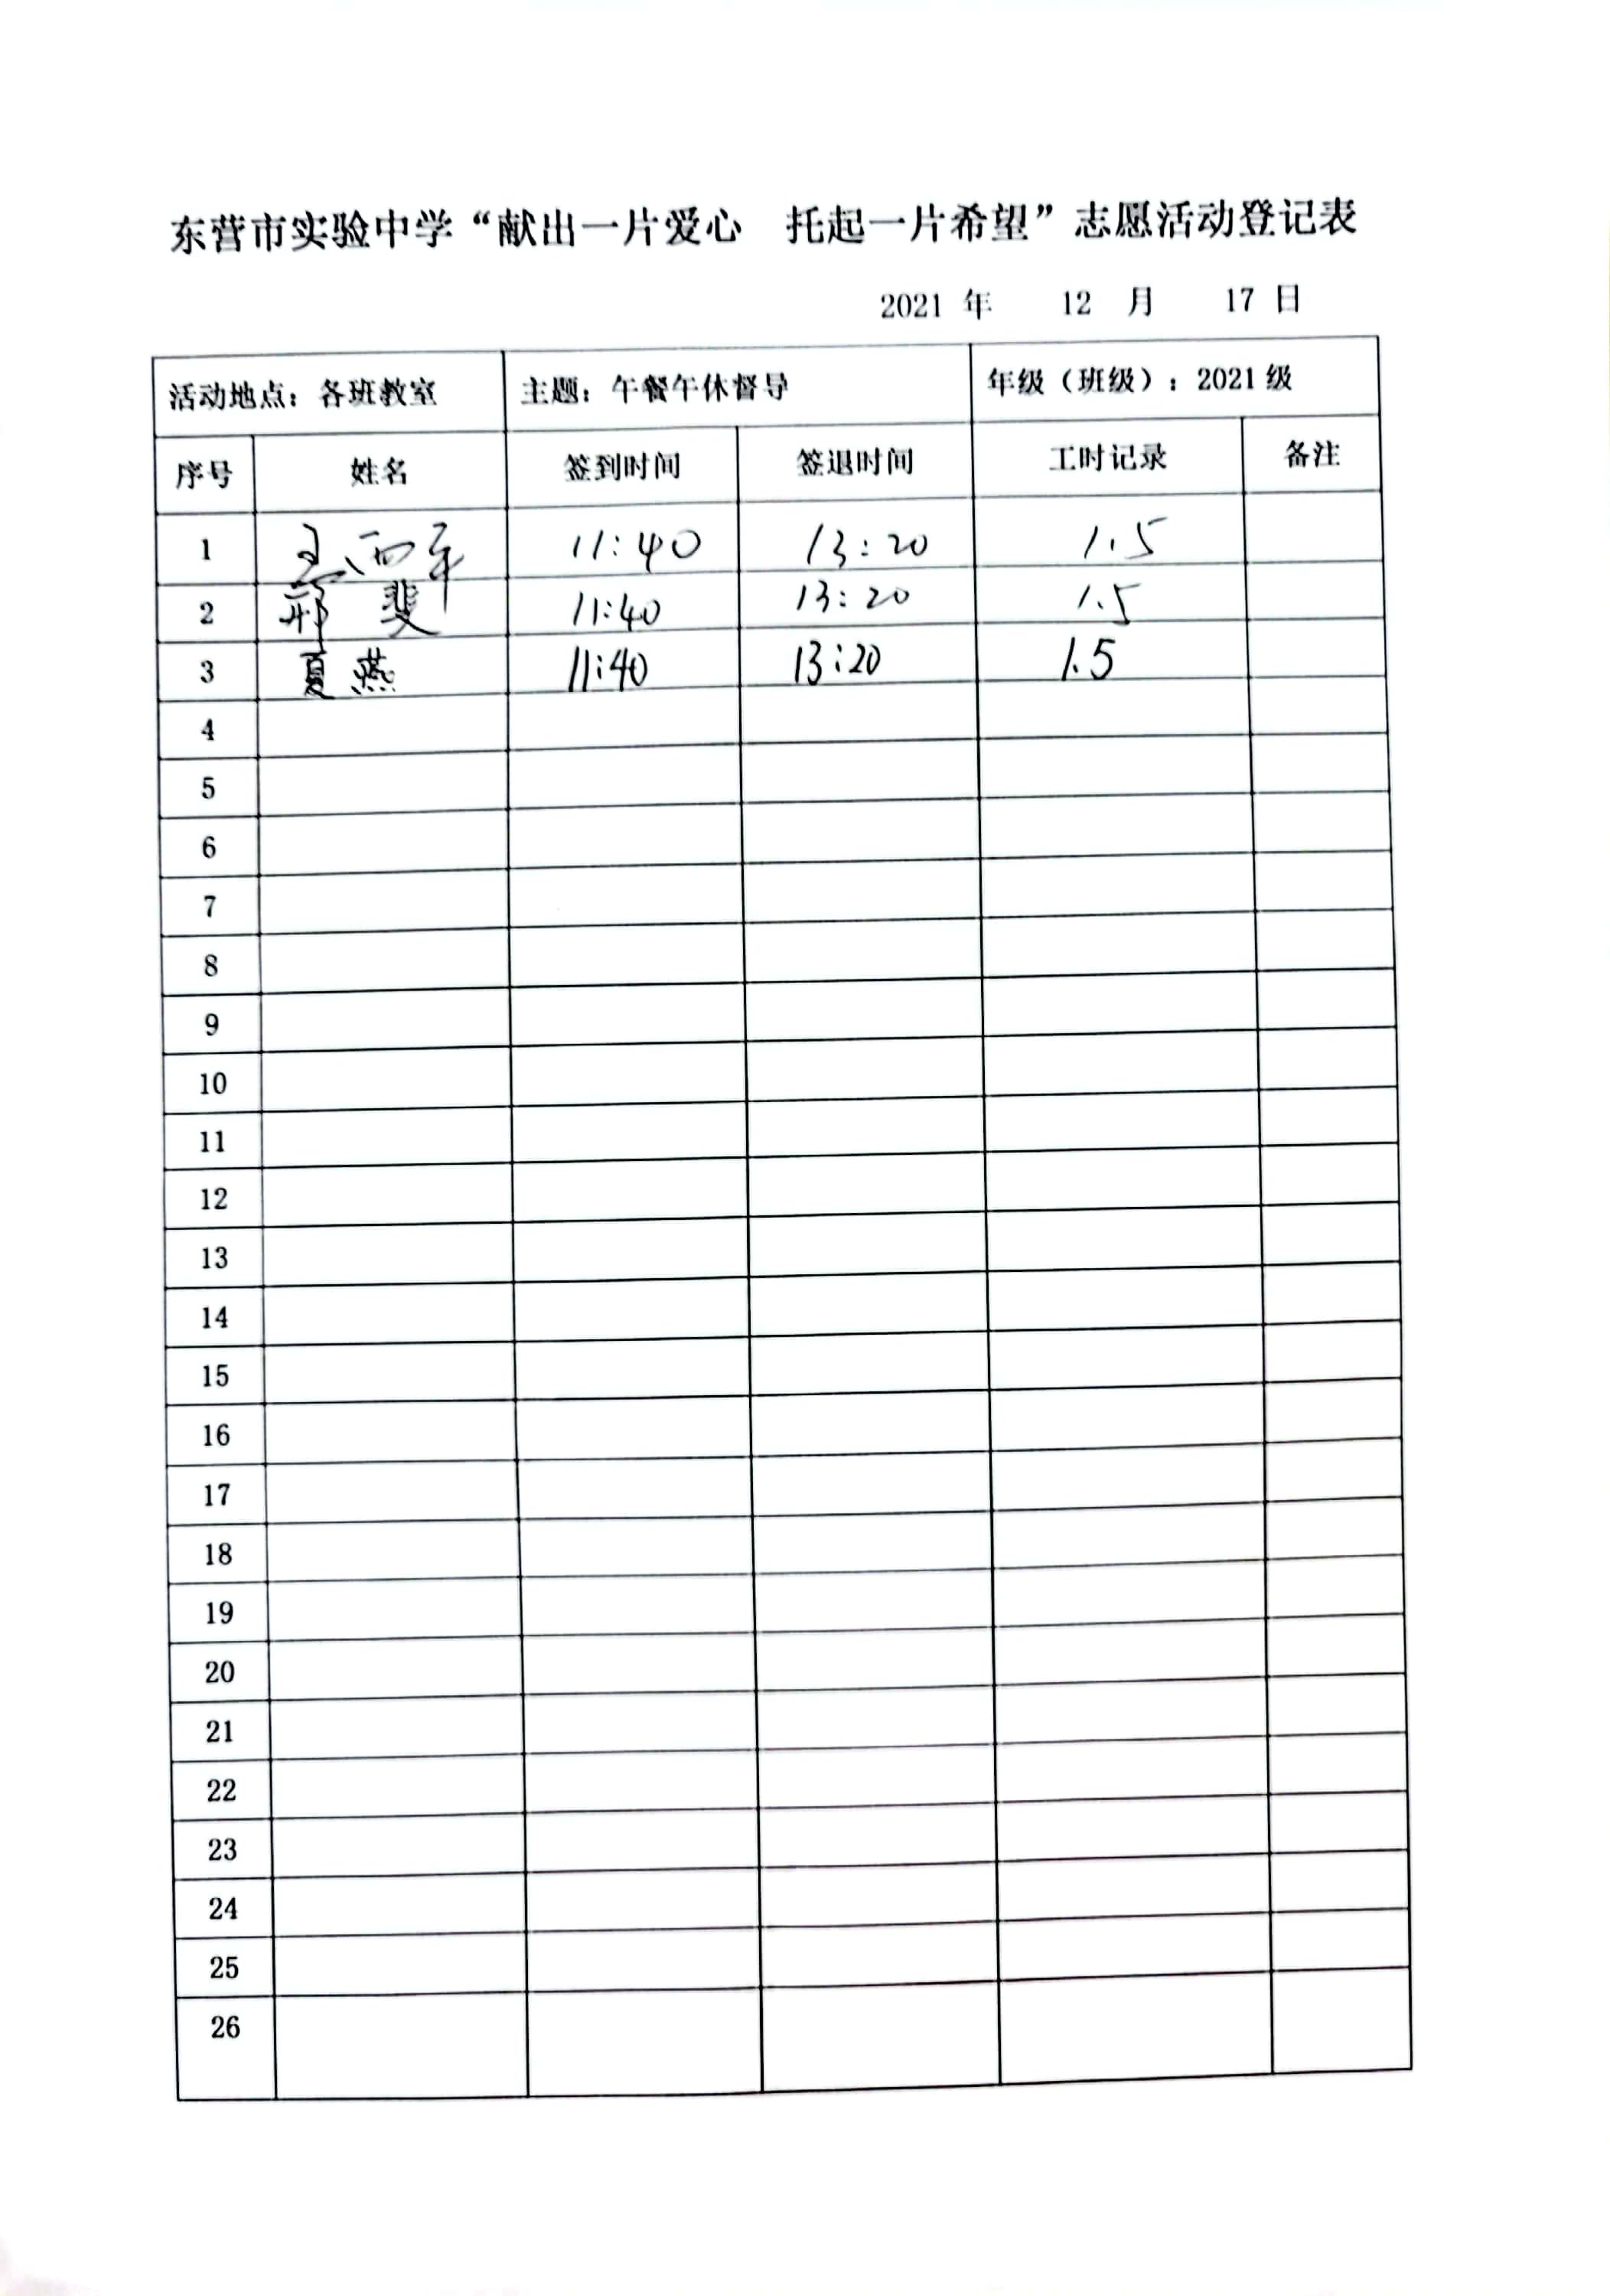 东营市实验中学“献出一片爱心 托起一片希望”志愿活动登记表
2021 年 12 月 17 日
活动地点：各班教室 主题：午餐午休督导 年级（班级）：2021级
序号 姓名 签到时间 签退时间 工时记录 备注
1 11:40 13:20 1.5
2 11:40 13:20 1.5
3 夏燕 11:40 13:20 1.5
4
5
6
7
8
9
10
11
12
13
14
15
16
17
18
19
20
21
22
23
24
25
26